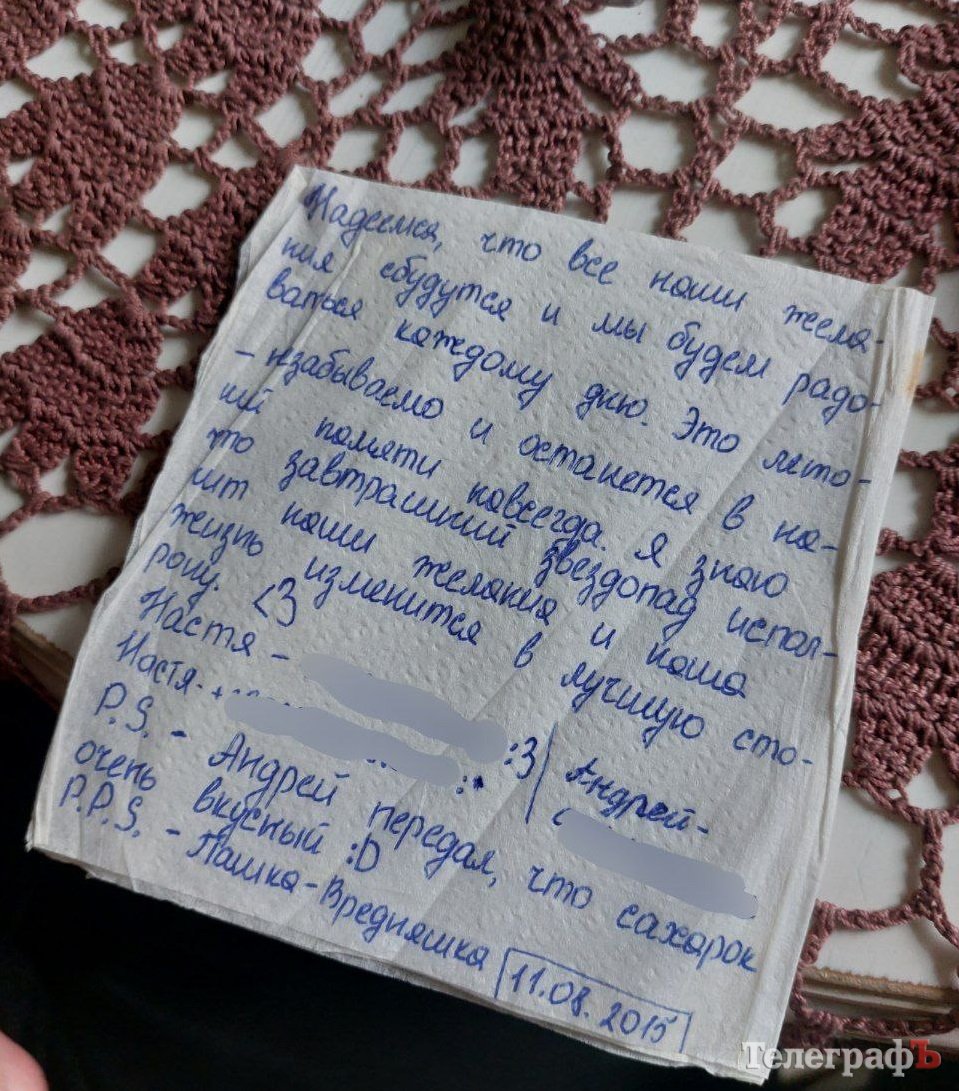 Надеемся, что все наши жела-
ния сбудутся и мы будем радо-
ваться каждому дню. Это лето-
- нзабываемо и останется в на-
шй помяти навсегда. Я знаю
что завтрашний звездопад испол-
нит наши желания и наша
жизнь изменится в лучшую сто-
рону. <3
Настя -
Настя- :3 | Андрей-
P.S. - Андрей передал, что сахарок
очень вкусный :D
P.P.S. - Пашка-Вредняшка
11.08.2015
ТелеграфЪ